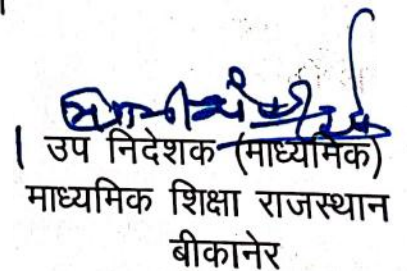 उप निदेशक (माध्यमिक)
माध्यमिक शिक्षा राजस्थान
बीकानेर